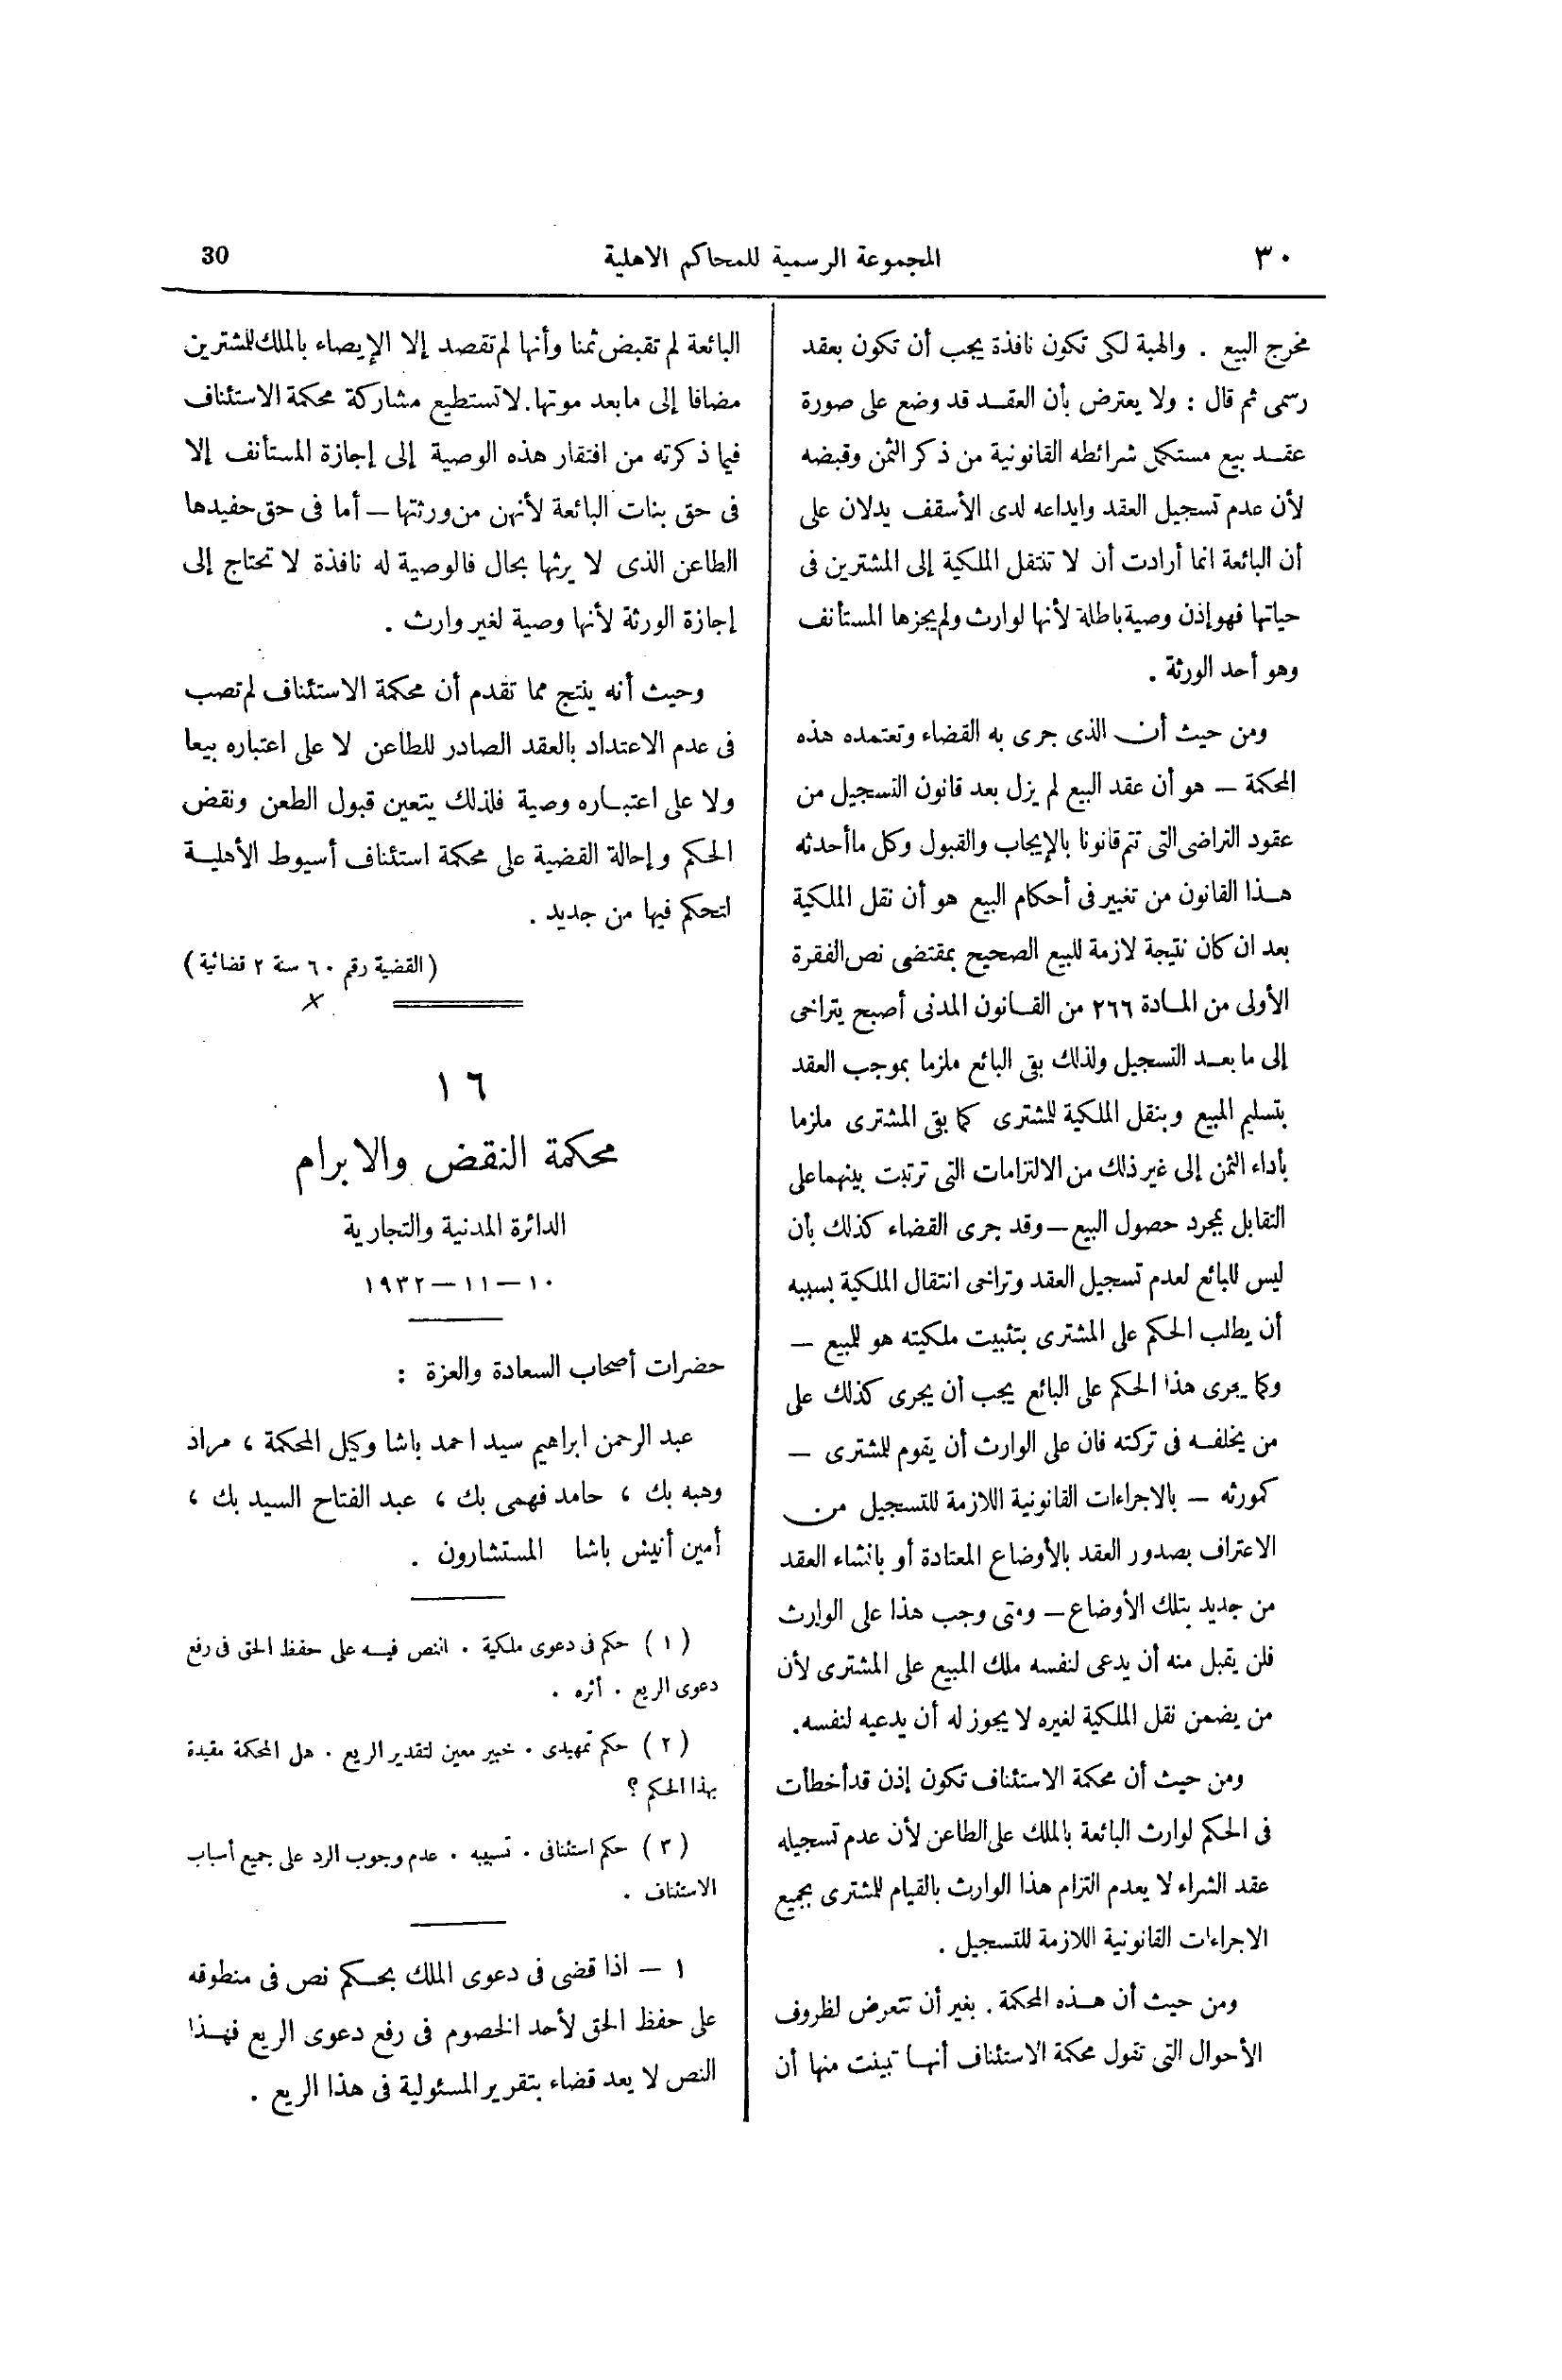 ٣٠
المجموعة الرسمية للمحاكم الاهلية
30
مخرج البيع . والهبة لكى تكون نافذة يجب أن تكون بعقد
رسمى ثم قال : ولا يعترض بأن العقد قد وضع على صورة
عقد بيع مستكمل شرائطه القانونية من ذكر الثمن وقبضه
لأن عدم تسجيل العقد وايداعه لدى الأسقف يدلان على
أن البائعة انما أرادت أن لا تنتقل الملكية إلى المشترين فى
حياتها فهو إذن وصية باطلة لأنها لوارث ولم يجزها المستأنف
وهو أحد الورثة .
ومن حيث أن الذى جرى به القضاء وتعتمده هذه
المحكمة — هو أن عقد البيع لم يزل بعد قانون التسجيل من
عقود التراضى التى تتم قانونا بالإيجاب والقبول وكل ماأحدثه
هذا القانون من تغيير فى أحكام البيع هو أن نقل الملكية
بعد ان كان نتيجة لازمة للبيع الصحيح بمقتضى نص الفقرة
الأولى من المادة ٢٦٦ من القانون المدنى أصبح يتراخى
إلى ما بعد التسجيل ولذلك بقى البائع ملزما بموجب العقد
بتسليم المبيع وبنقل الملكية للمشترى كما بقى المشترى ملزما
بأداء الثمن إلى غير ذلك من الالتزامات التى ترتبت بينهما على
التقابل بمجرد حصول البيع — وقد جرى القضاء كذلك بأن
ليس للبائع لعدم تسجيل العقد وتراخى انتقال الملكية بسببه
أن يطلب الحكم على المشترى بتثبيت ملكيته هو للمبيع —
وكما يجرى هذا الحكم على البائع يجب أن يجرى كذلك على
من يخلفه فى تركته فان على الوارث أن يقوم للمشترى —
كمورثه — بالاجراءات القانونية اللازمة للتسجيل من
الاعتراف بصدور العقد بالأوضاع المعتادة أو بانشاء العقد
من جديد بتلك الأوضاع — ومتى وجب هذا على الوارث
فلن يقبل منه أن يدعى لنفسه ملك المبيع على المشترى لأن
من يضمن نقل الملكية لغيره لا يجوز له أن يدعيه لنفسه.
ومن حيث أن محكمة الاستئناف تكون إذن قد أخطأت
فى الحكم لوارث البائعة بالملك على الطاعن لأن عدم تسجيله
عقد الشراء لا يعدم التزام هذا الوارث بالقيام للمشترى بجميع
الاجراءات القانونية اللازمة للتسجيل .
ومن حيث أن هذه المحكمة . بغير أن تتعرض لظروف
الأحوال التى تقول محكمة الاستئناف أنها تبينت منها أن
البائعة لم تقبض ثمنا وأنها لم تقصد إلا الإيصاء بالملك للمشترين
مضافا إلى مابعد موتها. لا تستطيع مشاركة محكمة الاستئناف
فيما ذكرته من افتقار هذه الوصية إلى إجازة المستأنف إلا
فى حق بنات البائعة لأنهن من ورثتها — أما فى حق حفيدها
الطاعن الذى لا يرثها بحال فالوصية له نافذة لا تحتاج إلى
إجازة الورثة لأنها وصية لغير وارث .
وحيث أنه ينتج مما تقدم أن محكمة الاستئناف لم تصب
فى عدم الاعتداد بالعقد الصادر للطاعن لا على اعتباره بيعا
ولا على اعتباره وصية فلذلك يتعين قبول الطعن ونقض
الحكم وإحالة القضية على محكمة استئناف أسيوط الأهلية
لتحكم فيها من جديد .
(القضية رقم ٦٠ سنة ٢ قضائية)
١٦
محكمة النقض والابرام
الدائرة المدنية والتجارية
١٠ — ١١ — ١٩٣٢
حضرات أصحاب السعادة والعزة :
عبد الرحمن ابراهيم سيد احمد باشا وكيل المحكمة ، مراد
وهبه بك ، حامد فهمى بك ، عبد الفتاح السيد بك ،
أمين أنيس باشا المستشارون .
(١) حكم فى دعوى ملكية . النص فيه على حفظ الحق فى رفع
دعوى الريع . أثره .
(٢) حكم تمهيدى . خبير معين لتقدير الريع . هل المحكمة مقيدة
بهذا الحكم ؟
(٣) حكم استئنافى . تسبيبه . عدم وجوب الرد على جميع أسباب
الاستئناف .
١ — اذا قضى فى دعوى الملك بحكم نص فى منطوقه
على حفظ الحق لأحد الخصوم فى رفع دعوى الريع فهذا
النص لا يعد قضاء بتقرير المسئولية فى هذا الريع .